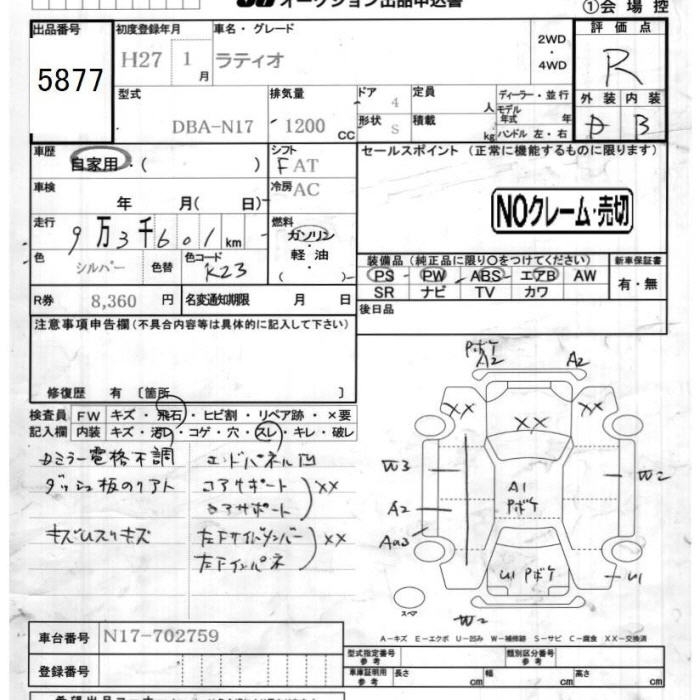 オークション出品申込書
①会場控
出品番号
5877
初度登録年月
H27 1月
車名・グレード
ラティオ
2WD
・
4WD
評価点
R
型式
DBA-N17
排気量
1200 CC
ドア 4
形状 S
定員 人
積載 kg
ディーラー・並行
モデル年式 年
ハンドル 左・右
外装 内装
D B
車歴
自家用・( )
シフト
FAT
セールスポイント(正常に機能するものに限ります)
車検
年 月( 日)
冷房
AC
NOクレーム・売切
走行
9万3千601km
燃料
ガソリン・
軽油・
( )
色
シルバー
色替
色コード
K23
装備品(純正品に限り○をつけてください)
新車保証書
PS PW ABS エアB AW
SR ナビ TV カワ
有・無
R券 8,360 円
名変通知期限 月 日
後日品
注意事項申告欄(不具合内容等は具体的に記入して下さい)
修復歴 有 〔箇所 〕
検査員
記入欄
FW キズ・飛石・ヒビ割・リペア跡・×要
内装 キズ・汚レ・コゲ・穴・スレ・キレ・破レ
ドミラー電格不調
エンドパネル凹
コアサポート
XX
キズ
XX
Pボケ
A2
A2
XX
XX
XX
W3
A2
A1
Pボケ
W2
U1 Pボケ
U1
スマ
W2
A-キズ E-エクボ U-凹み W-補修跡 S-サビ C-腐食 XX-交換済
車台番号
N17-702759
登録番号
型式指定番号
参考
類別区分番号
参考
車庫証明用
参考
長さ cm
幅 cm
高さ cm